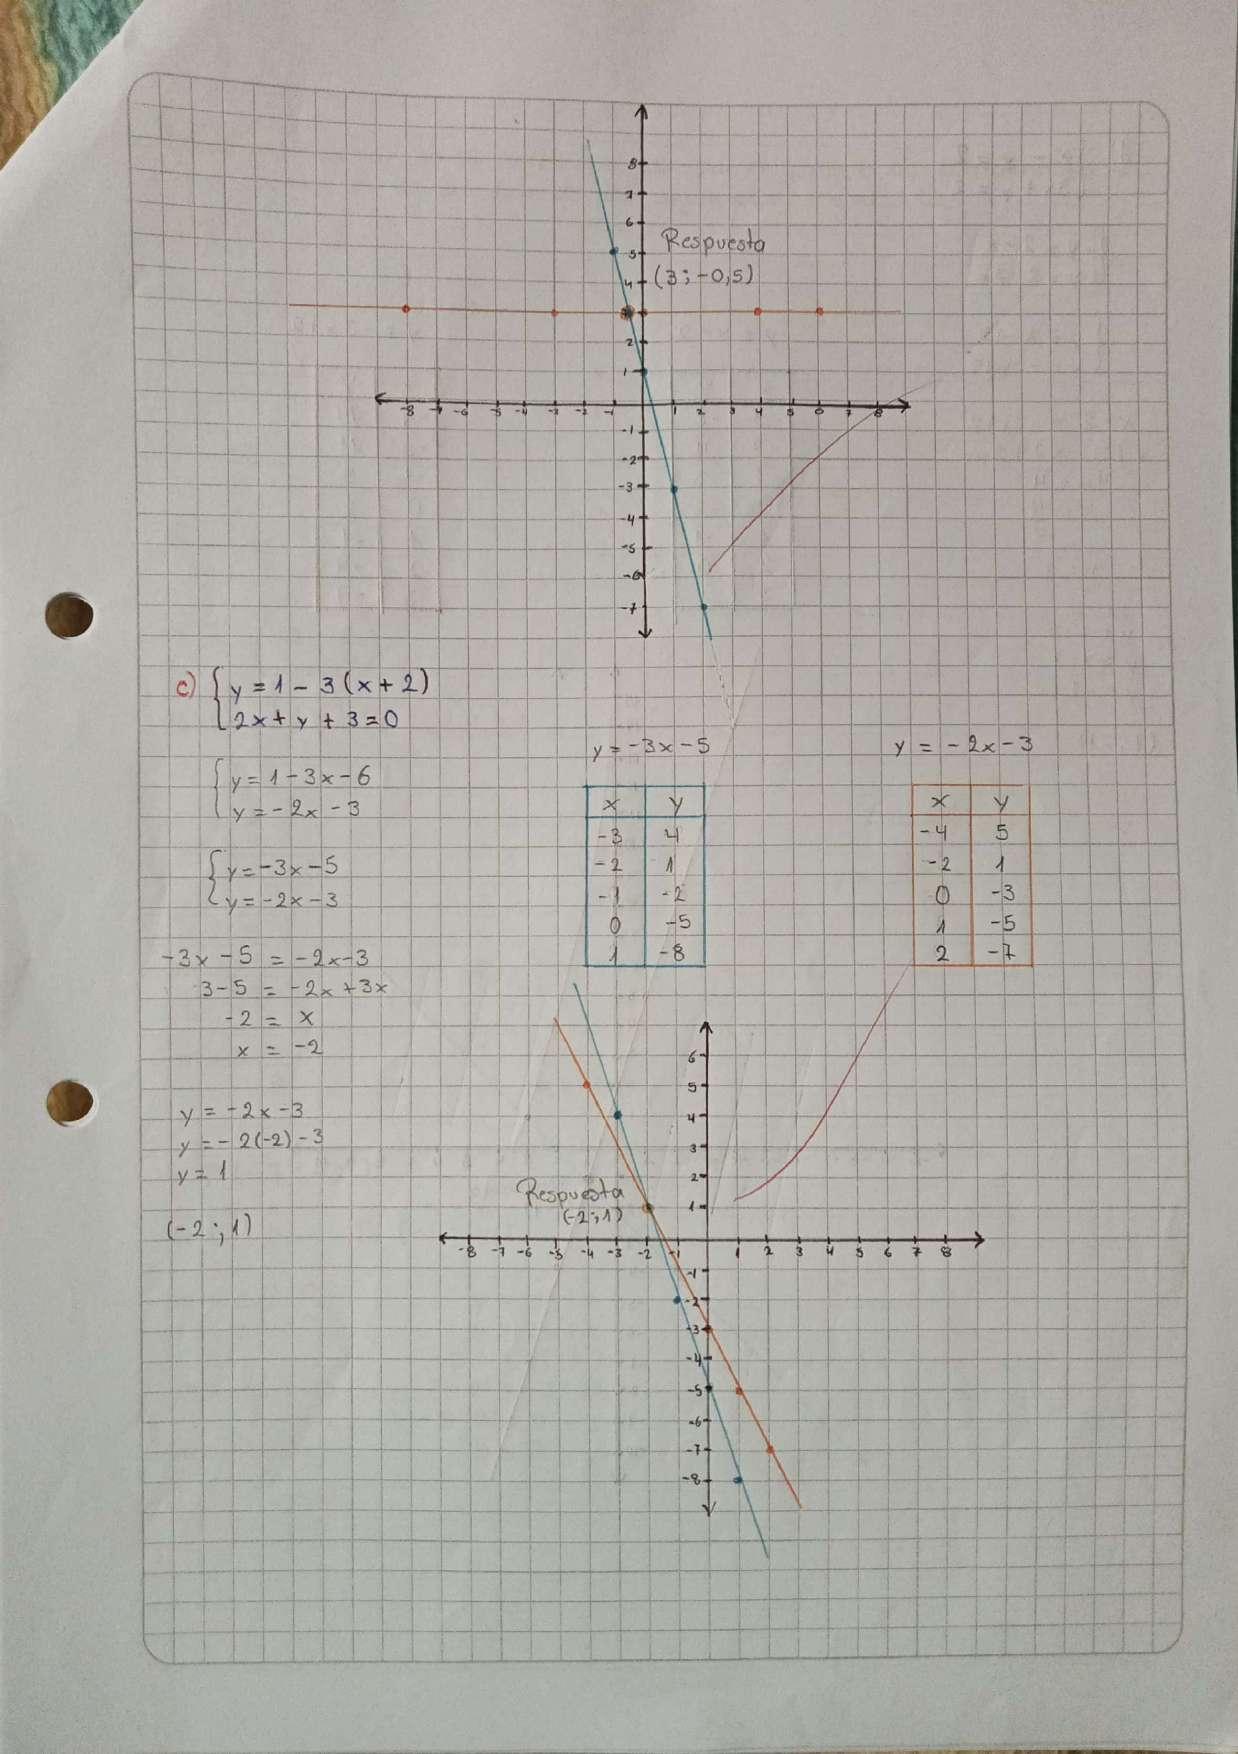 8
7
6
5
4
2
1
Respuesta
(3 ; -0,5)
-8 -7 -6 -5 -4 -3 -2 -1 1 2 3 4 5 6 7 8
-1
-2
-3
-4
-5
-6
-7
c) { y = 1 - 3 (x + 2)
2x + y + 3 = 0
{ y = 1 - 3x - 6
y = - 2x - 3
{ y = -3x - 5
y = -2x - 3
-3x - 5 = -2x - 3
3 - 5 = -2x + 3x
-2 = x
x = -2
y = -2x - 3
y = - 2(-2) - 3
y = 1
(-2 ; 1)
y = -3x - 5
x y
-3 4
-2 1
-1 -2
0 -5
1 -8
y = - 2x - 3
x y
-4 5
-2 1
0 -3
1 -5
2 -7
6
5
4
3
2
1
Respuesta
(-2 ; 1)
-8 -7 -6 -5 -4 -3 -2 -1 1 2 3 4 5 6 7 8
-1
-2
-3
-4
-5
-6
-7
-8